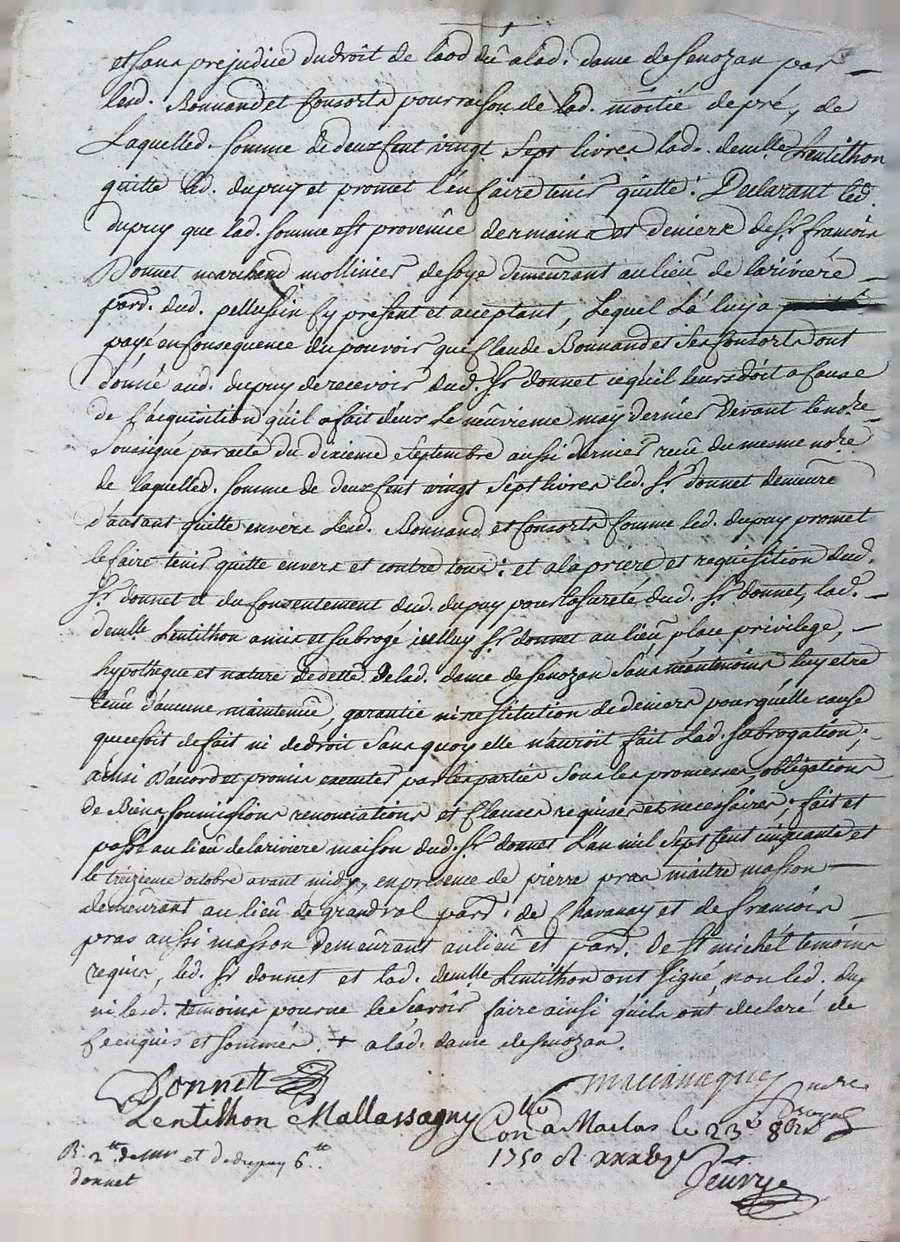 et sans prejudice du droit de laod dû a lad. dame de Senozan par
lesd. Bonnand et Consorts pour raison de lad. moitié de pré, de
Laquelled. Somme de deux Cent vingt Sept livres lad. demlle Lentilhon
quitte led. dupuy et promet l'en faire tenir quitte. Declarant led.
dupuy que lad. Somme est provenüe des mains et deniers de Sr. francois
Donnet marchand mollinier de Soye demeurant au lieu de lariviere
paro. dud. pellussin Cy present et acceptant, Lequel La luy a
payé en Consequence du pouvoir que Claude Bonnand et Ses Consorts ont
donné aud. dupuy de recevoir dud. Sr. donnet ce qu'il leurs doit a Cause
de l'acquisition qu'il a fait d'eux Le neuvieme may dernier devant le nore
Soussigné par acte du dixieme Septembre aussi dernier recu du meme nore
de laquelled. Somme de deux Cent vingt Sept livres led. Sr. donnet demeure
d'autant quitte envers Lesd. Bonnand et Consorts Comme led. dupuy promet
le faire tenir quitte envers et contre tous; et a la priere et requisition dud.
Sr. donnet et du Consentement dud. dupuy pour la sureté dud. Sr. donnet, lad.
demlle Lentilhon a mis et Subrogé icelluy Sr. donnet au lieu, place, privilege,
hypotheque et nature de dette de lad. dame de Senozan Sans neantmoins luy etre
tenu d'aucune maintenüe, garantie ni restitution de deniers pour qu'elle cause
que ce soit de fait ni de droit Sans quoy elle n'auroit fait Lad. Subrogation;
ainsi D'acord et promis executer par les parties Sous les promesses, obligations
de Biens Soumissions renonciations et Clauses requises et necessaires; fait et
passé au lieu de lariviere maison dud. Sr. donnet L'an mil Sept Cent cinquante et
le treizieme octobre avant midy, en presence de pierre pras maitre masson
demeurant au lieu de grandval paro. de Chavanay et de francois
pras aussi masson demeurant au lieu et paro. de St michel temoins
requis, led. Sr. donnet et lad. demlle Lentilhon ont Signé, non led. dup
ni lesd. temoins pour ne le Scavoir faire ainsi qu'ils ont declaré de
Ce enquis et Sommés. + a lad. dame de Senozan.
Donnet
Lentilhon Mallassagny
Conlle a Maclas le 23e 8bre
1750
R. 2 et de dupuy 6
donnet